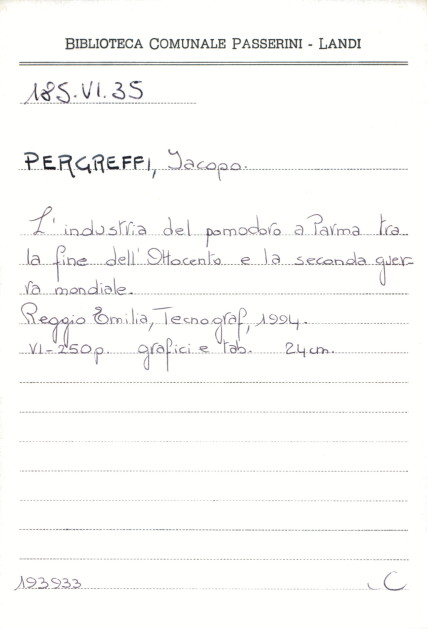 BIBLIOTECA COMUNALE PASSERINI - LANDI
185.VI.35
PERGREFFI, Jacopo.
L'industria del pomodoro a Parma tra
la fine dell'Ottocento e la seconda guer-
ra mondiale.
Reggio Emilia, Tecnograf, 1994.
VI-250p. grafici e tab. 24cm.
193933 C